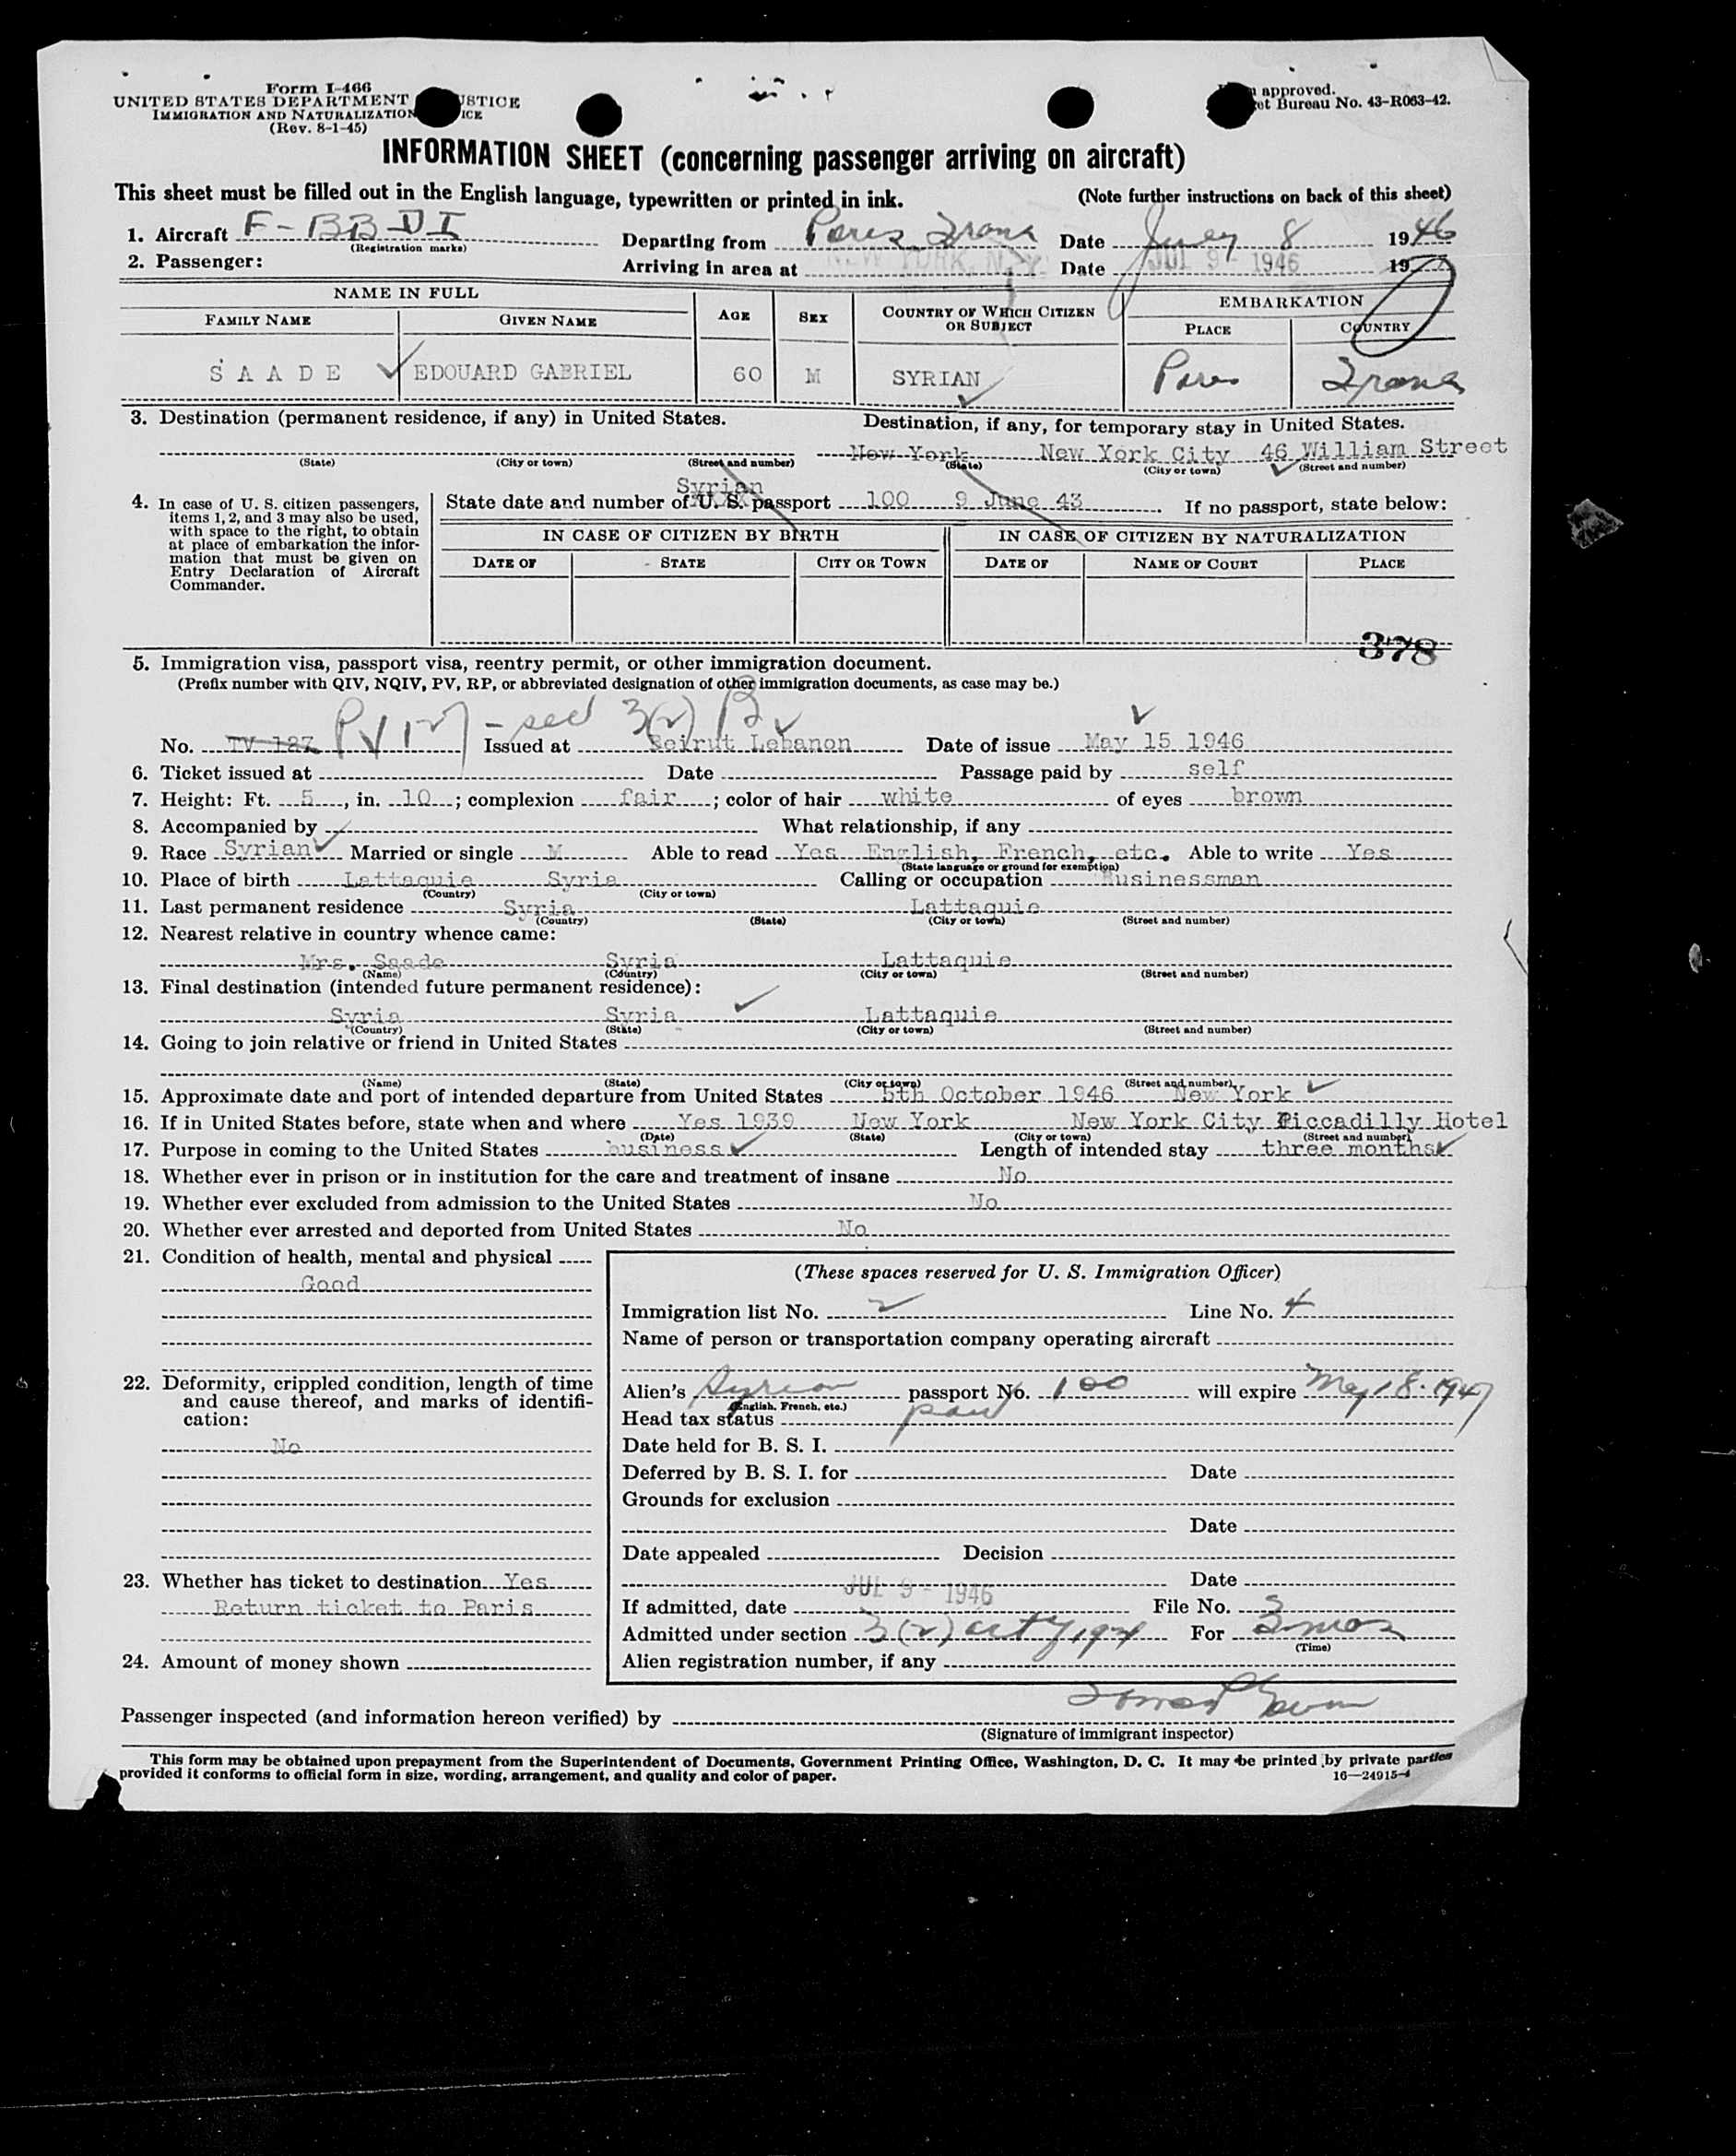 Form I-466
UNITED STATES DEPARTMENT USTICE
IMMIGRATION AND NATURALIZATION ICE
(Rev. 8-1-45)
approved.
et Bureau No. 43-R063-42.
INFORMATION SHEET (concerning passenger arriving on aircraft)
This sheet must be filled out in the English language, typewritten or printed in ink. (Note further instructions on back of this sheet)
1. Aircraft F-BBDI Departing from Paris Date July 8 1946
(Registration marks)
2. Passenger: Arriving in area at NEW YORK, N.Y. Date JUL 9 - 1946 19
NAME IN FULL AGE SEX COUNTRY OF WHICH CITIZEN OR SUBJECT EMBARKATION
FAMILY NAME GIVEN NAME PLACE COUNTRY
SAADE EDOUARD GABRIEL 60 M SYRIAN Paris
3. Destination (permanent residence, if any) in United States. Destination, if any, for temporary stay in United States.
New York New York City 46 William Street
(State) (City or town) (Street and number) (State) (City or town) (Street and number)
4. In case of U. S. citizen passengers, items 1, 2, and 3 may also be used, with space to the right, to obtain at place of embarkation the information that must be given on Entry Declaration of Aircraft Commander.
Syrian
State date and number of U. S. passport 100 9 June 43 . If no passport, state below:
IN CASE OF CITIZEN BY BIRTH IN CASE OF CITIZEN BY NATURALIZATION
DATE OF STATE CITY OR TOWN DATE OF NAME OF COURT PLACE
378
5. Immigration visa, passport visa, reentry permit, or other immigration document.
(Prefix number with QIV, NQIV, PV, RP, or abbreviated designation of other immigration documents, as case may be.)
PV 127 - sec 3(2) B
No. TV 127 Issued at Beirut Lebanon Date of issue May 15 1946
6. Ticket issued at Date Passage paid by self
7. Height: Ft. 5, in. 10; complexion fair; color of hair white of eyes brown
8. Accompanied by What relationship, if any
9. Race Syrian Married or single M Able to read Yes English, French, etc. Able to write Yes
(State language or ground for exemption)
10. Place of birth Lattaquie Syria Calling or occupation Businessman
(Country) (City or town)
11. Last permanent residence Syria Lattaquie
(Country) (State) (City or town) (Street and number)
12. Nearest relative in country whence came:
Mrs. Saade Syria Lattaquie
(Name) (Country) (City or town) (Street and number)
13. Final destination (intended future permanent residence):
Syria Syria Lattaquie
(Country) (State) (City or town) (Street and number)
14. Going to join relative or friend in United States
(Name) (State) (City or town) (Street and number)
15. Approximate date and port of intended departure from United States 5th October 1946 New York
16. If in United States before, state when and where Yes 1939 New York New York City Piccadilly Hotel
(Date) (State) (City or town) (Street and number)
17. Purpose in coming to the United States business Length of intended stay three months
18. Whether ever in prison or in institution for the care and treatment of insane No
19. Whether ever excluded from admission to the United States No
20. Whether ever arrested and deported from United States No
21. Condition of health, mental and physical
Good
22. Deformity, crippled condition, length of time and cause thereof, and marks of identification:
No
23. Whether has ticket to destination Yes
Return ticket to Paris
24. Amount of money shown
(These spaces reserved for U. S. Immigration Officer)
Immigration list No. 2 Line No. 4
Name of person or transportation company operating aircraft
Alien's Syrian passport No. 100 will expire May 18 1947
(English, French, etc.)
Head tax status paid
Date held for B. S. I.
Deferred by B. S. I. for Date
Grounds for exclusion
Date
Date appealed Decision
Date
If admitted, date JUL 9 - 1946 File No.
Admitted under section 3(2) For 3 mos
(Time)
Alien registration number, if any
Passenger inspected (and information hereon verified) by
(Signature of immigrant inspector)
This form may be obtained upon prepayment from the Superintendent of Documents, Government Printing Office, Washington, D. C. It may be printed by private parties
provided it conforms to official form in size, wording, arrangement, and quality and color of paper. 16—24915-1